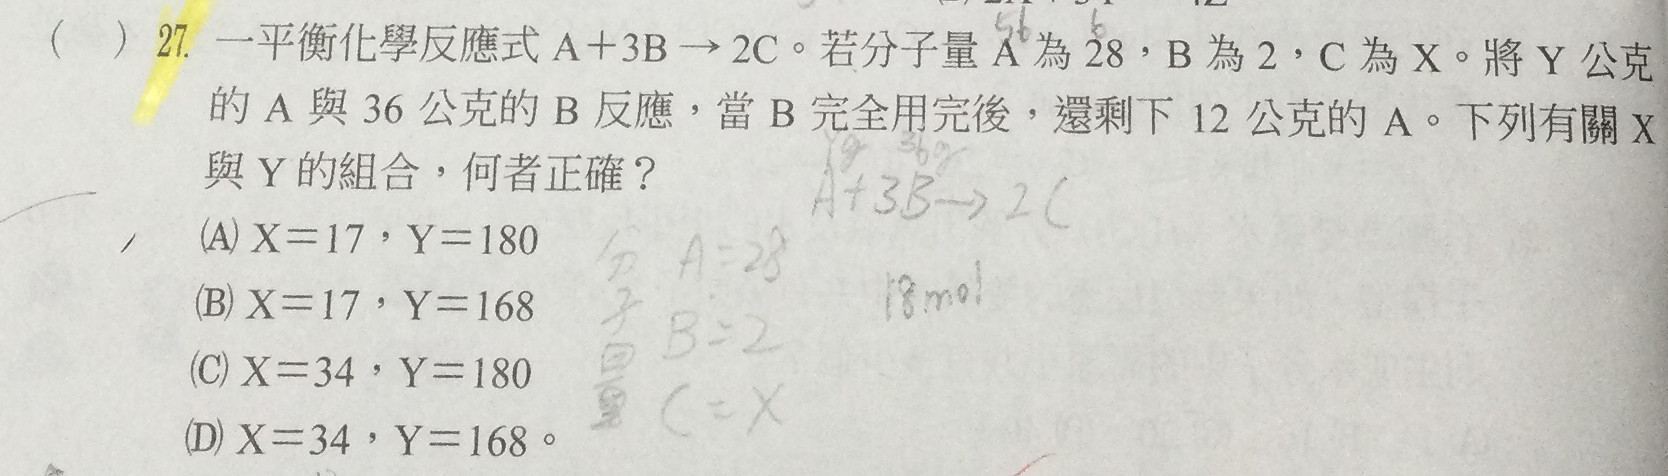 ( ) 27. 一平衡化學反應式 A+3B → 2C。若分子量 A 為 28,B 為 2,C 為 X。將 Y 公克
56 6
的 A 與 36 公克的 B 反應,當 B 完全用完後,還剩下 12 公克的 A。下列有關 X
與 Y 的組合,何者正確?
Yg 36g
A+3B→2C
(A) X=17,Y=180
(B) X=17,Y=168
(C) X=34,Y=180
(D) X=34,Y=168。
分子量
A=28
B=2
C=X
18mol